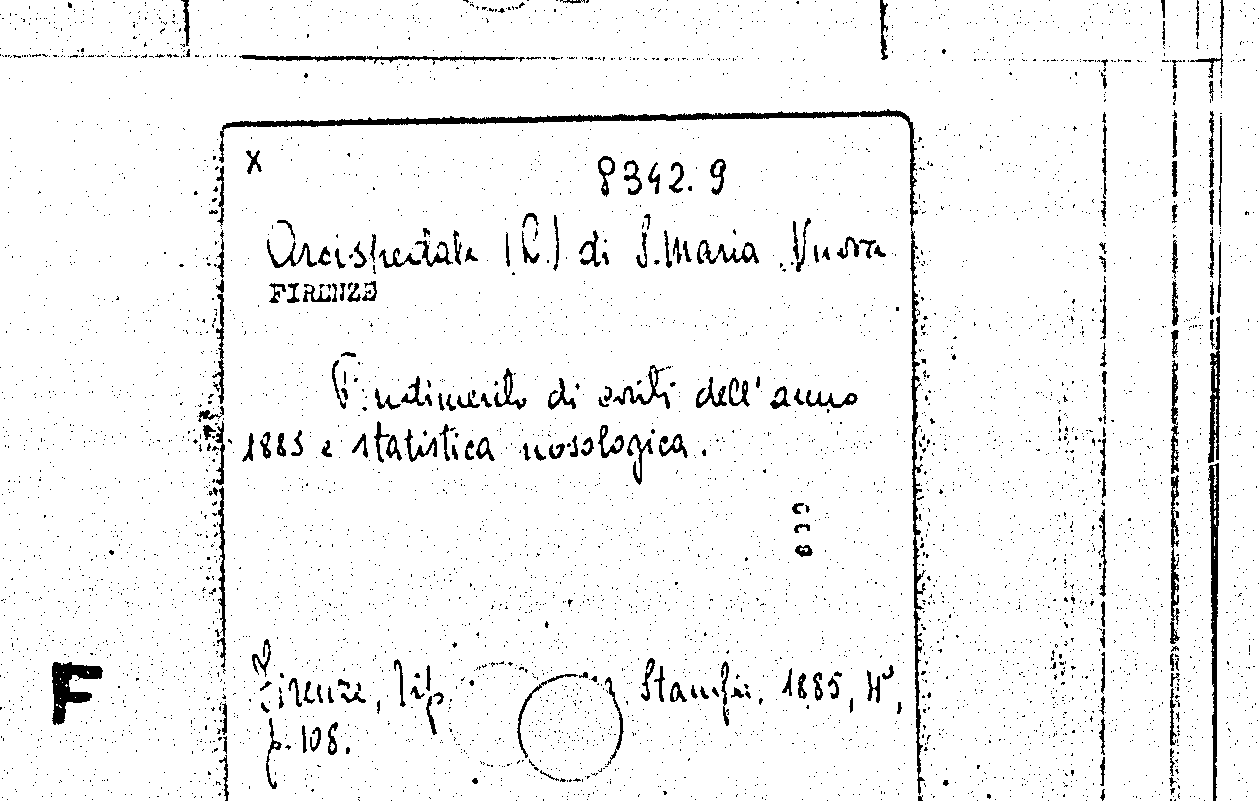 X
8342.9
Arcispedale (R.) di S. Maria Nuova
FIRENZE
di dell'anno
1885 e statistica nosologica.
F
Firenze, Tip. Stamp. 1885, 4°,
p. 108.